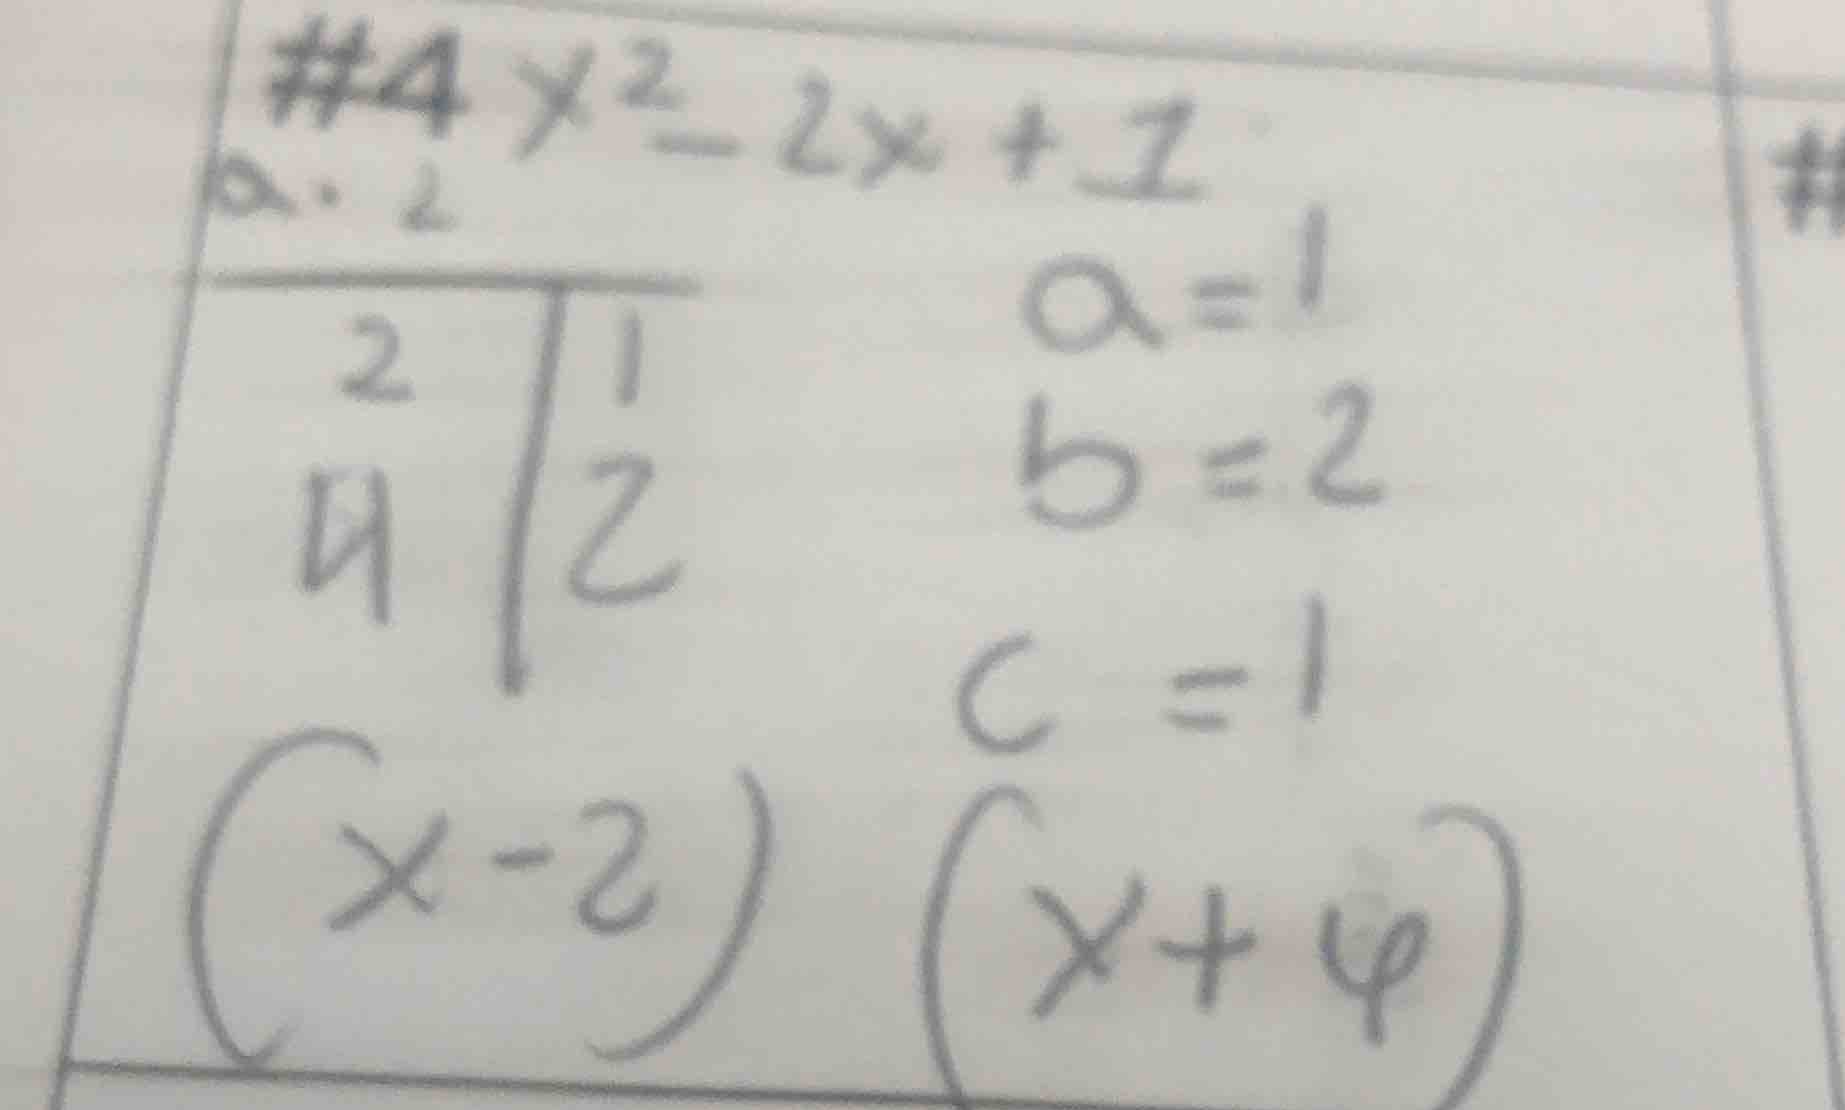 #4 x² - 2x + 1
a. 2
2 | 1
4 | 2
a = 1
b = 2
c = 1
(x - 2) (x + 4)
#